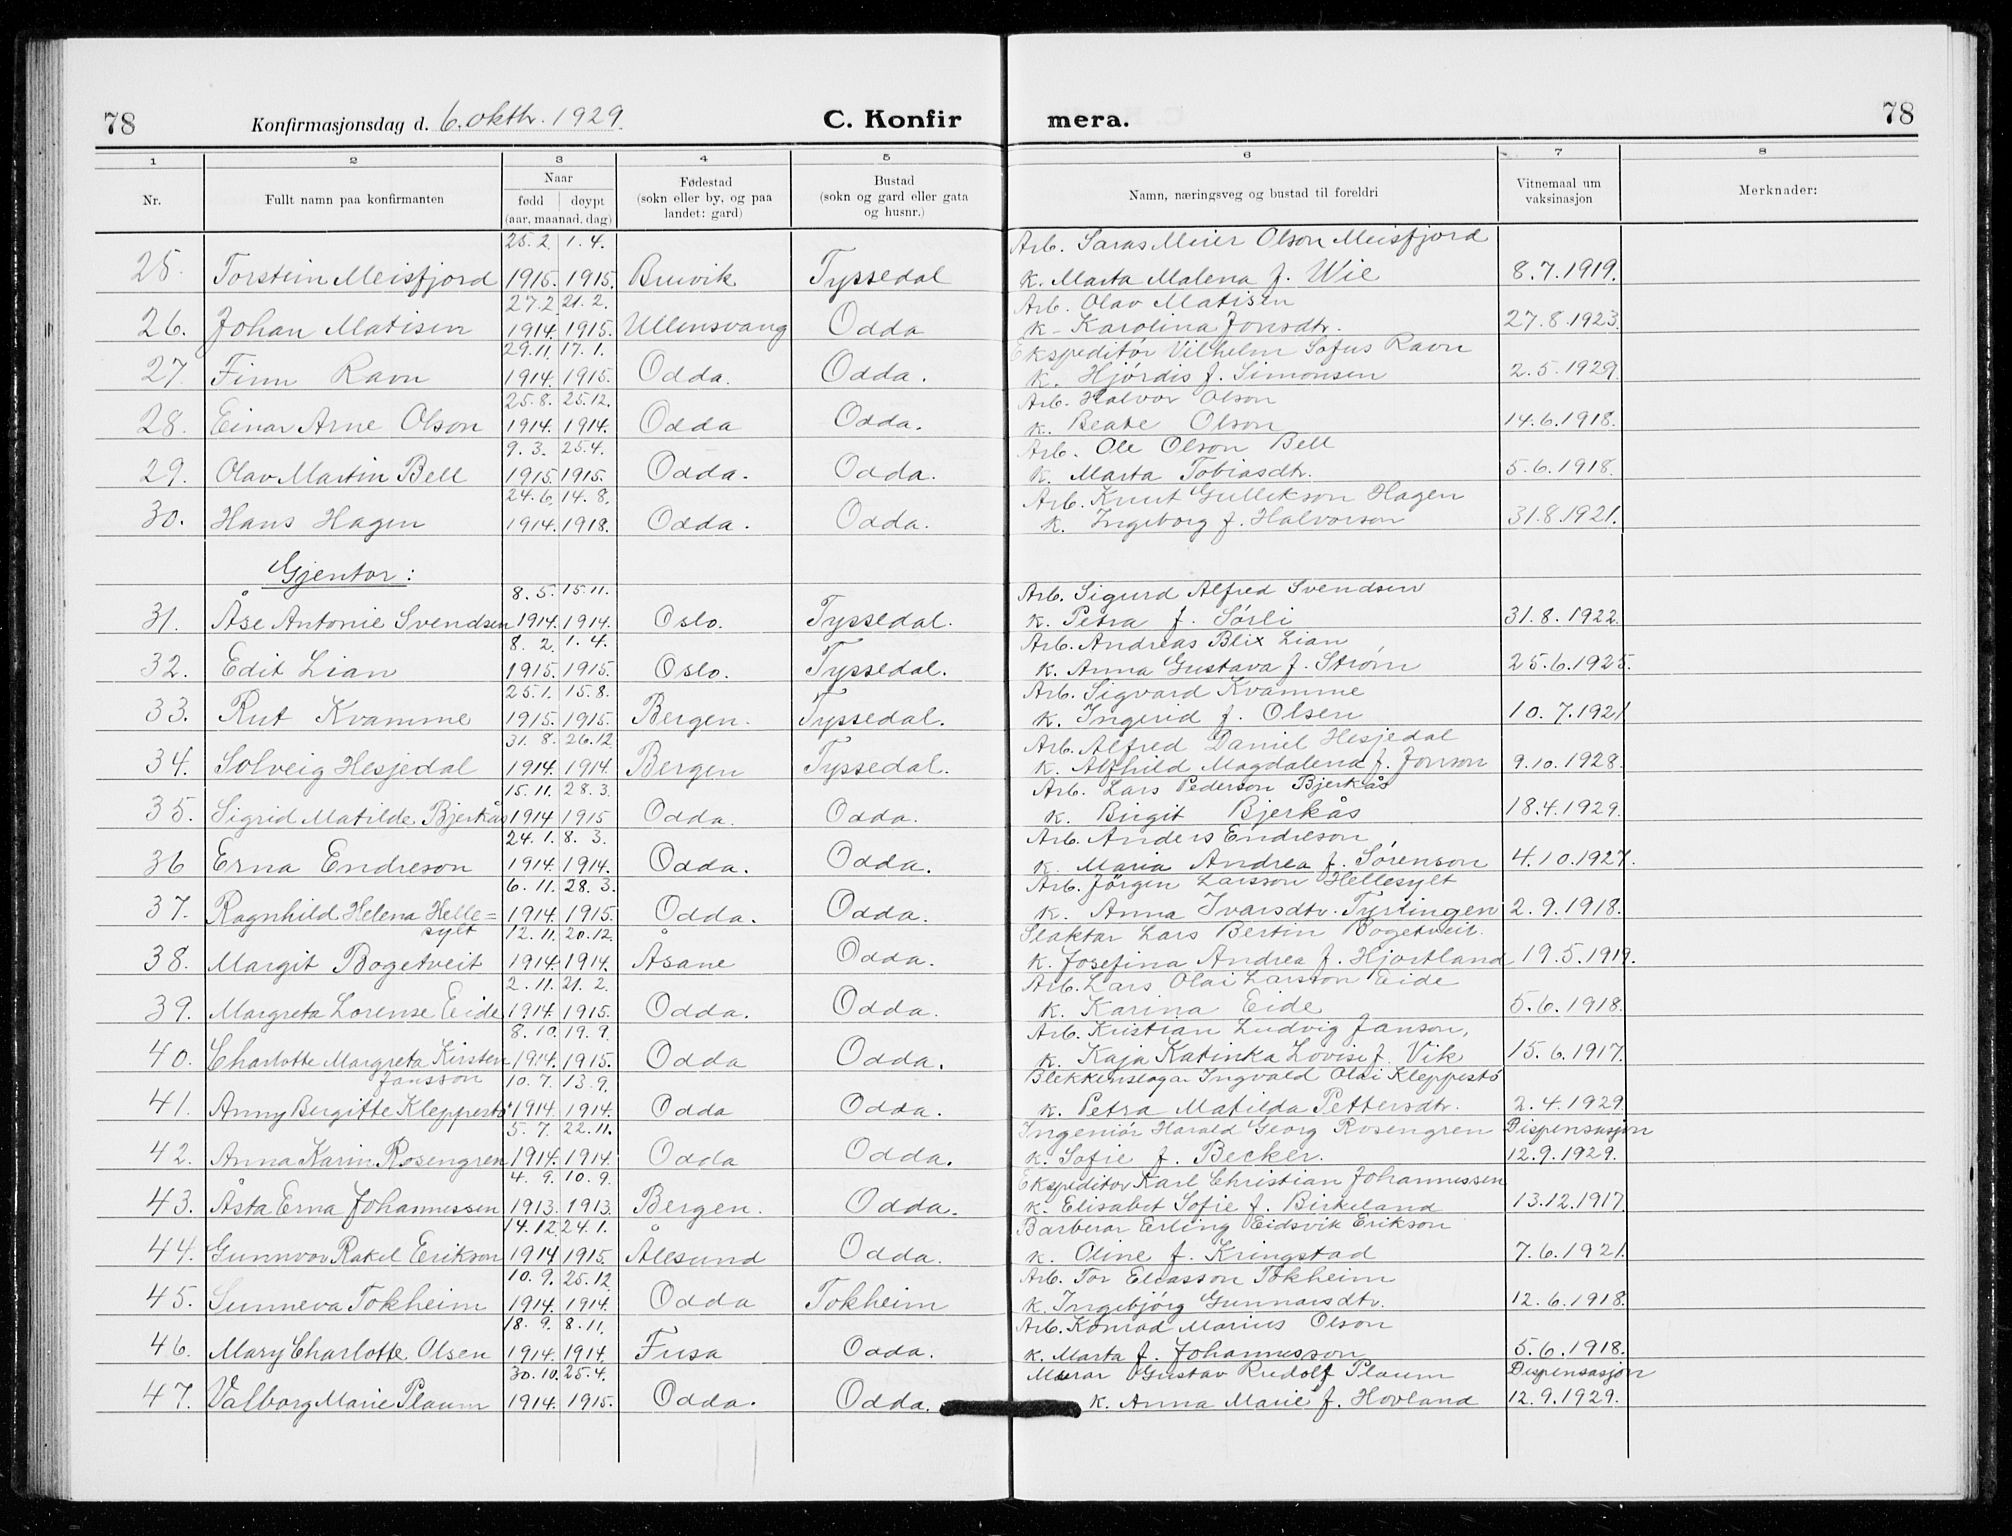 78 Konfirmasjonsdag d. 6. oktbr. 1929. C. Konfir mera. 78
1 2 3 4 5 6 7 8
Nr. Fullt namn paa konfirmanten Naar født døypt (aar, maanad, dag) Fødestad (sokn eller by, og paa landet: gard) Bustad (sokn og gard eller gata og husnr.) Namn, næringsveg og bustad til foreldri Vitnemaal um vaksinasjon Merknader:
25.2. 1.4. Arb. Saras Meier Olson Meisfjord
25. Torstein Meisfjord 1915. 1915. Bruvik Tyssedal k. Marta Malena f. Wie 8.7.1919.
27.2. 21.2. Arb. Olav Matisen
26. Johan Matisen 1914. 1915. Ullensvang Odda k. Karolina Jonsdtr. 27.8.1923.
29.11. 17.1. Ekspeditør Vilhelm Sofus Ravn
27. Finn Ravn 1914. 1915. Odda. Odda. k. Hjørdis f. Simonsen 2.5.1929.
25.8. 25.12. Arb. Halvor Olson
28. Einar Arne Olson 1914. 1914. Odda Odda. k. Beate Olson 14.6.1918.
9.3. 25.4. Arb. Ole Olson Bell
29. Olav Martin Bell 1915. 1915. Odda. Odda. k. Marta Tobiasdtr. 5.6.1918.
24.6. 14.8. Arb. Knut Gullikson Hagen
30. Hans Hagen 1914. 1918. Odda. Odda. k. Ingeborg f. Halvorson 31.8.1921.
Gjentor:
8.5. 15.11. Arb. Sigurd Alfred Svendsen
31. Åse Antonie Svendsen 1914. 1914. Oslo. Tyssedal. k. Petra f. Sørli 31.8.1922.
8.2. 1.4. Arb. Andreas Blix Lian
32. Edit Lian 1915. 1915. Oslo. Tyssedal. k. Anna Gustava f. Strøm 25.6.1925.
25.1. 15.8. Arb. Sigvard Kvamme
33. Rut Kvamme 1915. 1915. Bergen. Tyssedal. k. Ingerid f. Olsen 10.7.1921
31.8. 26.12. Arb. Alfred Daniel Hesjedal
34. Solveig Hesjedal 1914. 1914. Bergen Tyssedal. k. Alfhild Magdalena f. Jonson 9.10.1928.
15.11. 28.3. Arb. Lars Pederson Bjerkås
35. Sigrid Matilde Bjerkås 1914 1915 Odda. Odda. k. Birgit Bjerkås 18.4.1929.
24.1. 8.3. Arb. Anders Endreson
36 Erna Endreson 1914. 1914. Odda. Odda. k. Maria Andrea f. Sørenson 4.10.1927.
6.11. 28.3. Arb. Jørgen Larsson Hellesylt
37. Ragnhild Helena Helle= 1914. 1915. Odda. Odda. k. Anna Ivarsdtr. Tyrlingen 2.9.1918.
sylt 12.11. 20.12. Slaktar Lars Bertin Bogetveit.
38. Margit Bogetveit 1914. 1914. Åsane Odda. k. Josefina Andrea f. Hjortland 19.5.1919.
2.11. 21.2. Arb. Lars Olai Larsson Eide
39. Margreta Lorense Eide 1914. 1915. Odda. Odda. k. Karina Eide 5.6.1918.
8.10. 19.9. Arb. Kristian Ludvig Janson,
40. Charlotte Margreta Kirsten 1914. 1915. Odda Odda. k. Kaja Katinka Lovise f. Vik 15.6.1917.
Jansson 10.7. 13.9. Blekkenslagar Ingvald Olai Kleppestø
41. Anny Bergitte Kleppestø 1914. 1914. Odda Odda. k. Petra Matilda Pettersdtr. 2.4.1929.
5.7. 22.11. Ingeniør Harald Georg Rosengren Dispensasjon
42. Anna Karin Rosengren 1914. 1914. Odda Odda. k. Sofie f. Becker. 12.9.1929.
4.9. 10.9. Ekspeditør Karl Christian Johannessen
43. Åsta Erna Johannessen 1913. 1913. Bergen. Odda. k. Elisabet Sofie f. Birkeland 13.12.1917.
14.12. 24.1. Barberar Erling Eidsvik Erikson
44. Gunnvor Rakel Erikson 1914 1915. Ålesund Odda. k. Oline f. Kringstad 7.6.1921.
10.9. 25.12. Arb. Tor Eliasson Tokheim
45. Sunneva Tokheim 1914. 1914. Odda Tokheim k. Ingebjørg Gunnarsdtr. 12.6.1918.
18.9. 8.11. Arb. Konrad Marius Olson
46. Mary Charlotte Olsen 1914. 1914. Fusa Odda. k. Marta f. Johannesson 5.6.1918.
30.10. 25.4. Murar Gustav Rudolf Plaum Dispensasjon
47. Valborg Marie Plaum 1914. 1915. Odda. Odda. k. Anna Marie f. Hovland 12.9.1929.